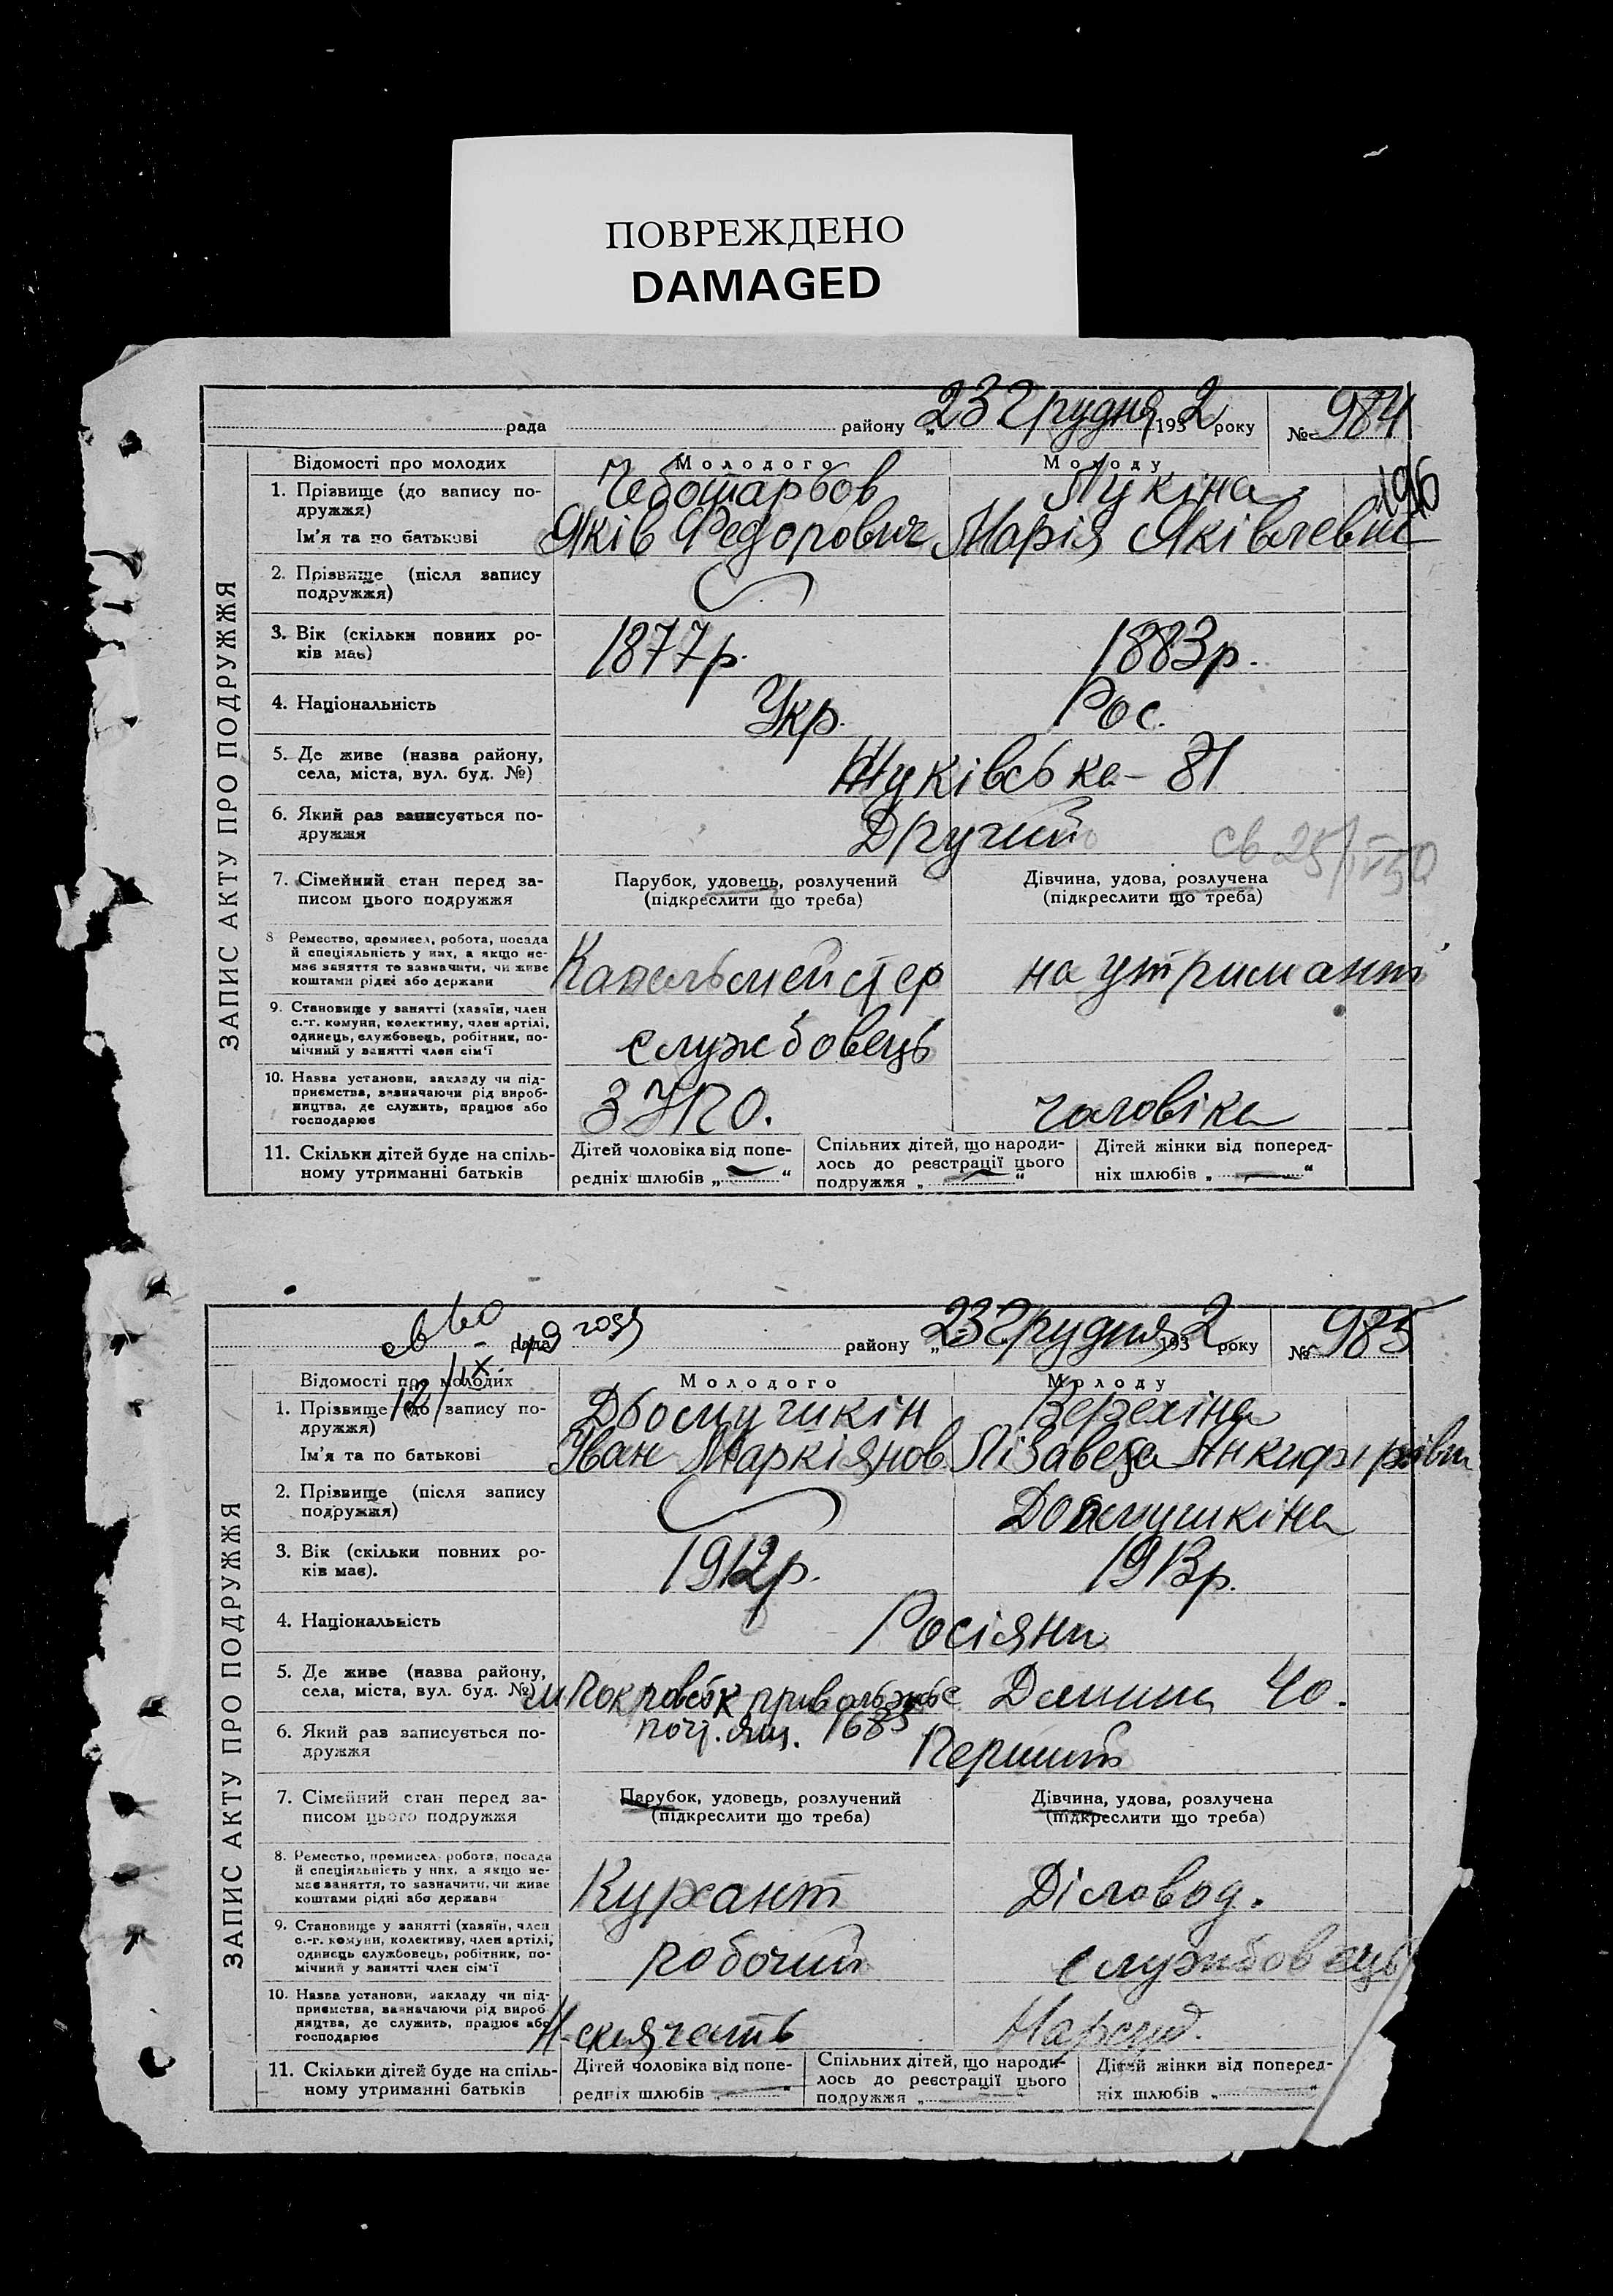 ПОВРЕЖДЕНО
DAMAGED
рада району „23 Грудня 1932 року № 984
196
ЗАПИС АКТУ ПРО ПОДРУЖЖЯ
Відомості про молодих Молодого Молоду
1. Прізвище (до запису по-
дружжя) Чеботарьов Лукіна
Ім'я та по батькові Яків Федорович Марія Яківлевна
2. Прізвище (після запису
подружжя)
3. Вік (скільки повних ро-
ків має) 1877 р. 1883 р.
4. Національність Укр. Рос.
5. Де живе (назва району,
села, міста, вул. буд. №) Жуківська – 81
6. Який раз записується по-
дружжя Другий
св 25/IV50
7. Сімейний стан перед за-
писом цього подружжя
Парубок, удовець, розлучений
(підкреслити що треба)
Дівчина, удова, розлучена
(підкреслити що треба)
8 Ремество, промисел, робота, посада
й спеціяльність у них, а якщо не-
має заняття то зазначити, чи живе
коштами рідні або держави
Капельмейстер на утриманні
9. Становище у занятті (хазяїн, член
с.-г. комуни, колективу, член артілі,
одинець, службовець, робітник, по-
мічний у занятті член сім'ї
службовець
10. Назва установи, закладу чи під-
приємства, зазначаючи рід вироб-
ництва, де служить, працює або
господарює
чоловіка
11. Скільки дітей буде на спіль-
ному утриманні батьків
Дітей чоловіка від попе-
редніх шлюбів „ “
Спільних дітей, що народи-
лось до реєстрації цього
подружжя „ “
Дітей жінки від поперед-
ніх шлюбів „ “
рада району „23 Грудня 1932 року № 985
12/IX - 49 года
ЗАПИС АКТУ ПРО ПОДРУЖЖЯ
Відомості про молодих Молодого Молоду
1. Прізвище (до запису по-
дружжя)
Ім'я та по батькові Іван Маркіянов Лізавета
2. Прізвище (після запису
подружжя)
3. Вік (скільки повних ро-
ків має). 1912 р. 1913 р.
4. Національність Росіяни
5. Де живе (назва району,
села, міста, вул. буд. №) 40.
почт. ящ. 1685
6. Який раз записується по-
дружжя Перший
7. Сімейний стан перед за-
писом цього подружжя
Парубок, удовець, розлучений
(підкреслити що треба)
Дівчина, удова, розлучена
(підкреслити що треба)
8. Ремество, промисел, робота, посада
й спеціяльність у них, а якщо не-
має заняття, то зазначити, чи живе
коштами рідні або держави
Курсант Діловод.
9. Становище у занятті (хазяїн, член
с.-г. комуни, колективу, член артілі,
одинець службовець, робітник, по-
мічний у занятті член сім'ї
робочий службовець
10. Назва установи, закладу чи під-
приємства, зазначаючи рід вироб
ництва, де служить, працює або
господарює
Нарсуд.
11. Скільки дітей буде на спіль-
ному утриманні батьків
Дітей чоловіка від попе-
редніх шлюбів „ “
Спільних дітей, що народи-
лось до реєстрації цього
подружжя „ “
Дітей жінки від поперед-
ніх шлюбів „ “